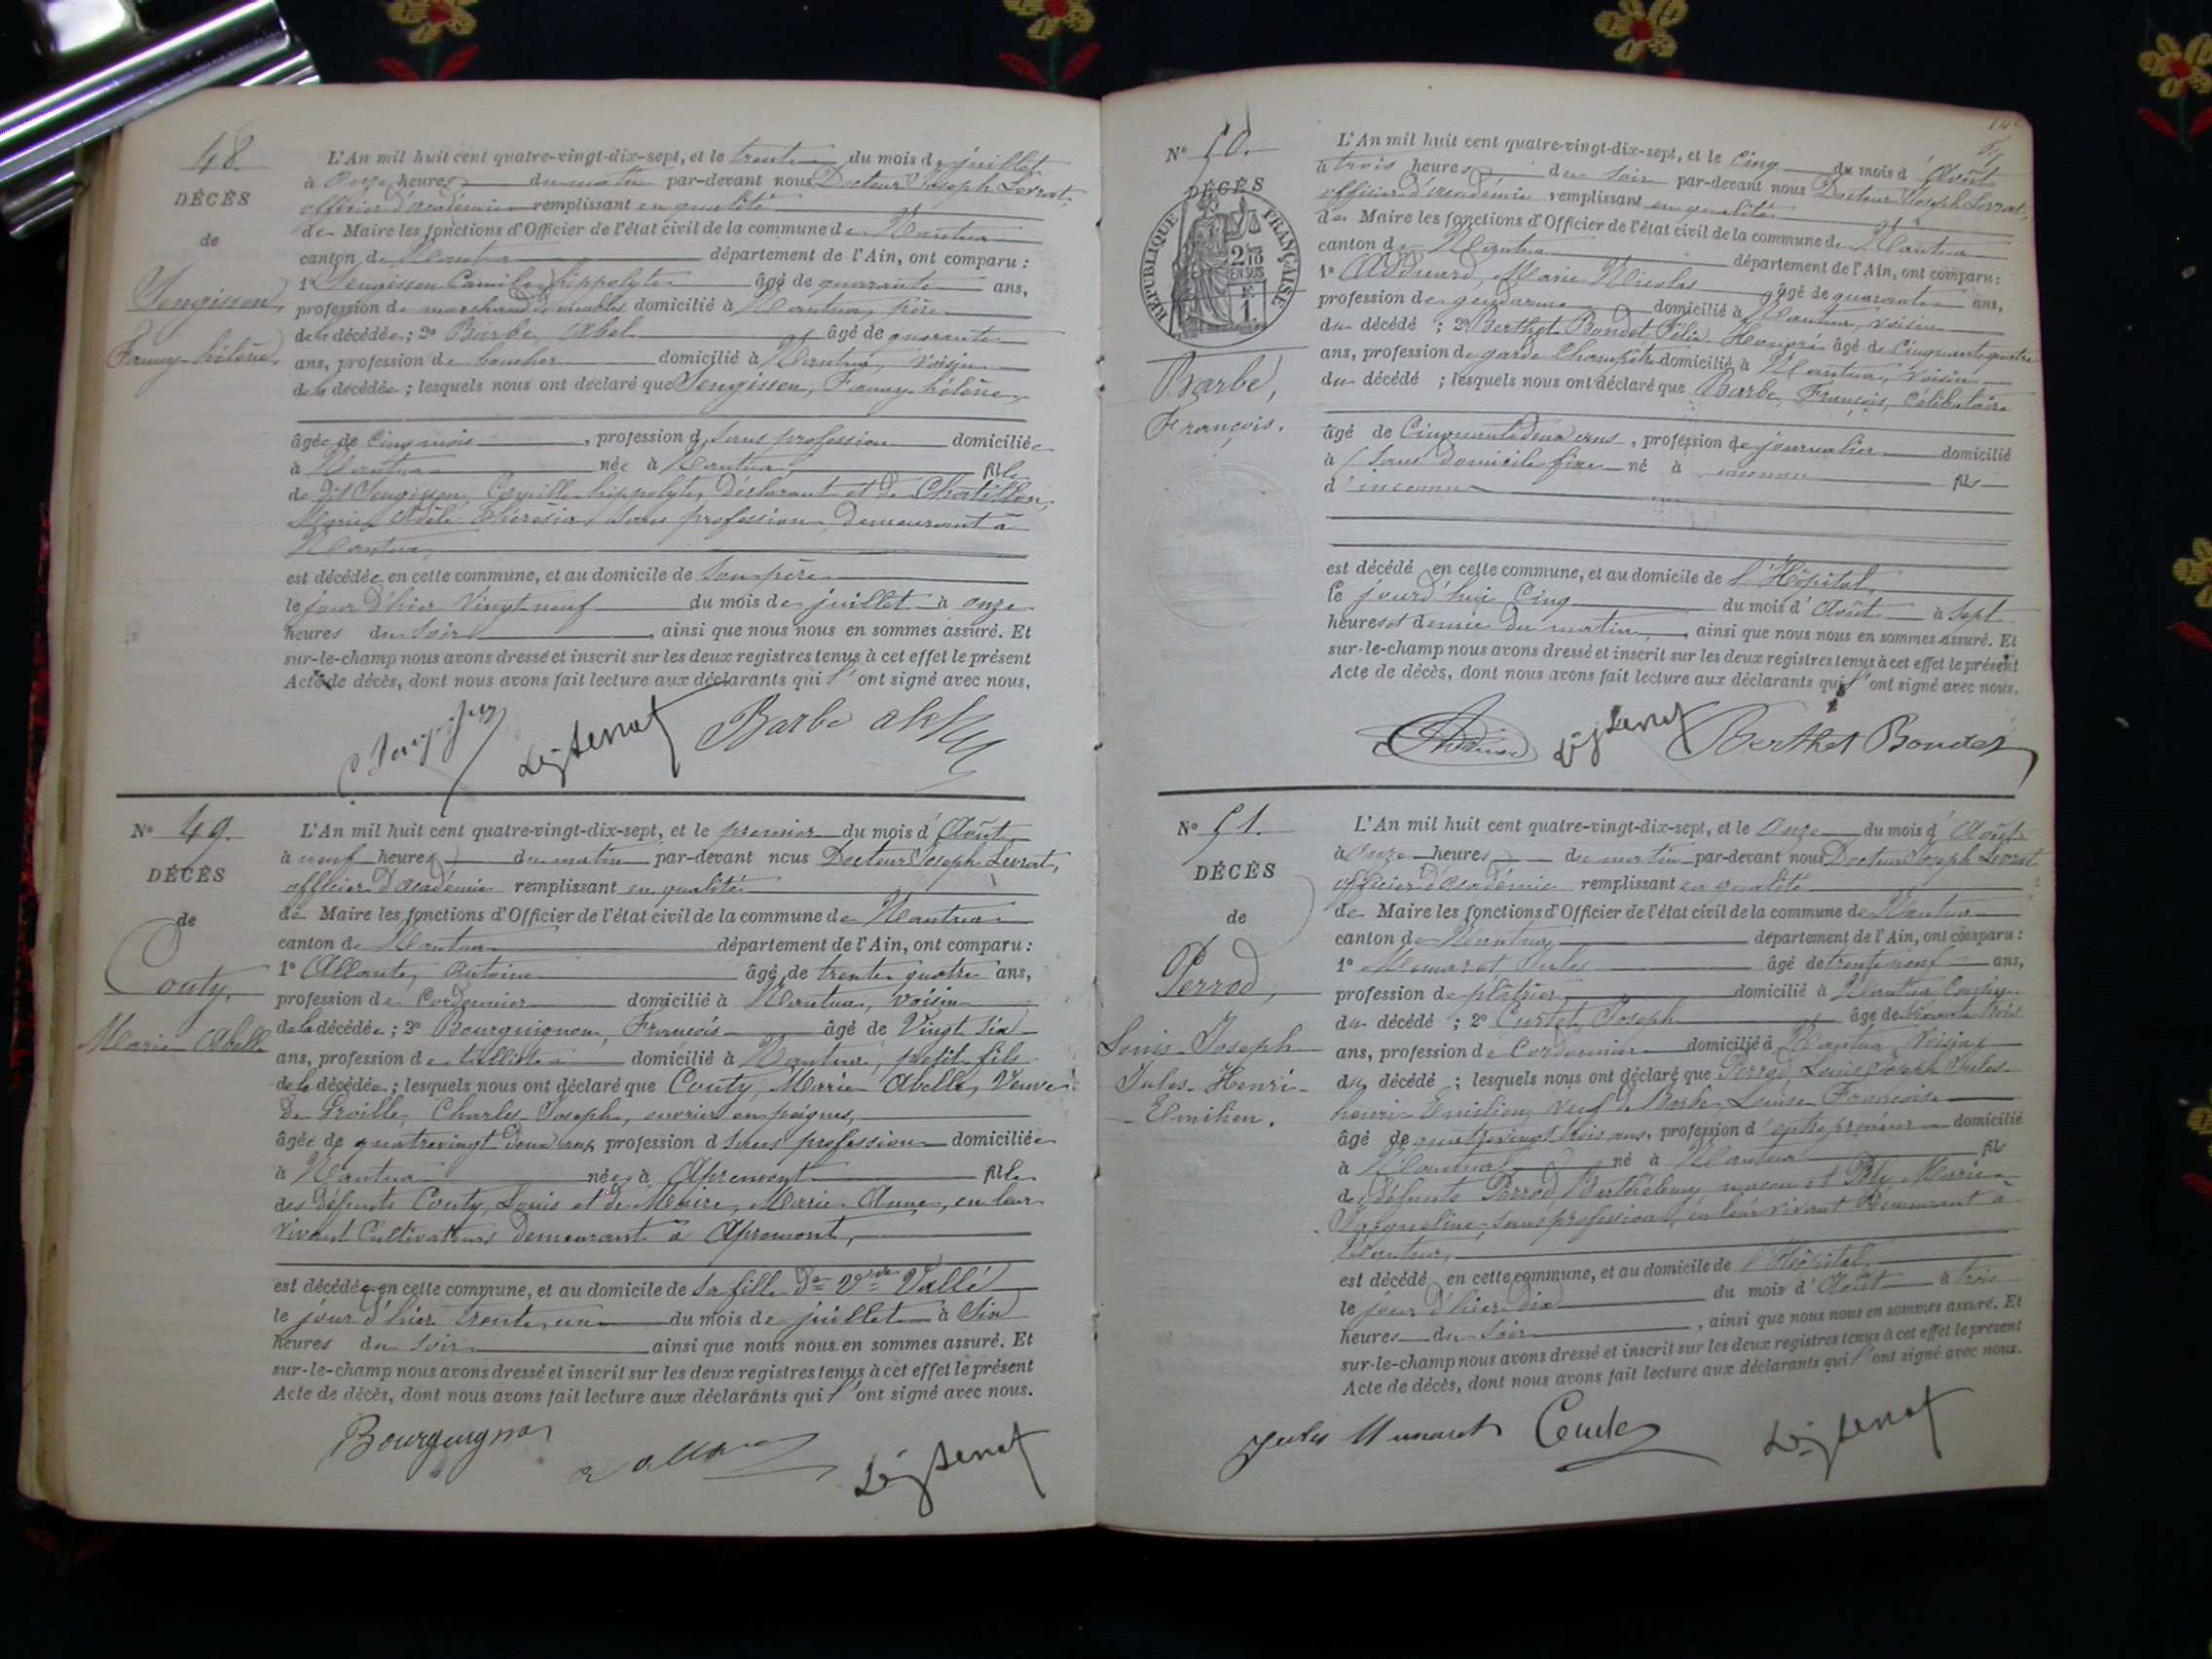 48.
DÉCÈS
de
Jeugissen,
Fanny hélène.
L'An mil huit cent quatre-vingt-dix-sept, et le trente du mois de juillet
à Onze heures du matin par-devant nous Docteur Joseph Levrat,
officier d'académie remplissant en qualité
de Maire les fonctions d'Officier de l'état civil de la commune de Nantua
canton de Nantua département de l'Ain, ont comparu :
1° Camille hippolyte âgé de quarante ans,
profession de marchand de meubles domicilié à Nantua, père
de la décédée ; 2° Barbe, Abel âgé de quarante
ans, profession de boucher domicilié à Nantua, voisin
de la décédée ; lesquels nous ont déclaré que Fanny hélène,
âgée de Cinq mois , profession d sans profession domiciliée
à Nantua née à Nantua, fille
de dit Camille hippolyte, déclarant et de Chatillon,
Marie Adèle Thérésia, sans profession, demeurant à
Nantua,
est décédée en cette commune, et au domicile de son père
le jour d'hier Vingt neuf du mois de juillet à onze
heures du soir , ainsi que nous nous en sommes assuré. Et
sur-le-champ nous avons dressé et inscrit sur les deux registres tenus à cet effet le présent
Acte de décès, dont nous avons fait lecture aux déclarants qui l'ont signé avec nous.
Barbe
N° 49.
DÉCÈS
de
Couty,
Marie Abelle
L'An mil huit cent quatre-vingt-dix-sept, et le premier du mois d'Août
à neuf heures du matin par-devant nous Docteur Joseph Levrat,
officier d'académie remplissant en qualité
de Maire les fonctions d'Officier de l'état civil de la commune de Nantua
canton de Nantua département de l'Ain, ont comparu :
1° Allante, Antoine âgé de trente quatre ans,
profession de Cordonnier domicilié à Nantua, voisin
de la décédée ; 2° Bourguignon, François âgé de Vingt six
ans, profession de tulliste domicilié à Nantua, petit fils
de la décédée ; lesquels nous ont déclaré que Couty, Marie Abelle, Veuve
de Groille, Charles Joseph, ouvrier en peignes,
âgée de quatrevingt deux ans, profession d sans profession domiciliée
à Nantua née à Apremont fille
des défunts Couty, Louis et de Maire, Marie Anne, en leur
vivant Cultivateurs demeurant à Apremont,
est décédée en cette commune, et au domicile de sa fille De Vve Vallé
le jour d'hier trente un du mois de juillet à Six
heures du soir ainsi que nous nous en sommes assuré. Et
sur-le-champ nous avons dressé et inscrit sur les deux registres tenus à cet effet le présent
Acte de décès, dont nous avons fait lecture aux déclarants qui l'ont signé avec nous.
Bourguignon
N° 50.
DÉCÈS
RÉPUBLIQUE FRANÇAISE
2/10 EN SUS
Barbe,
François.
L'An mil huit cent quatre-vingt-dix-sept, et le Cinq du mois d'Août
à trois heures du soir par-devant nous Docteur Joseph Levrat,
officier d'académie remplissant en qualité
de Maire les fonctions d'Officier de l'état civil de la commune de Nantua
canton de Nantua département de l'Ain, ont comparu :
1° Marie Nicolas âgé de quarante ans,
profession de gendarme domicilié à Nantua, voisin
du décédé ; 2° Berthet Bondet, Félix Honoré âgé de Cinquante quatre
ans, profession de garde Champêtre domicilié à Nantua, voisin
du décédé ; lesquels nous ont déclaré que Barbe, François, Célibataire
âgé de Cinquante deux ans, profession de journalier domicilié
à sans domicile fixe né à inconnu fils
d'inconnu
est décédé en cette commune, et au domicile de l'Hôpital,
le jourd'hui Cinq du mois d'Août à sept
heures et demie du matin, ainsi que nous nous en sommes assuré. Et
sur-le-champ nous avons dressé et inscrit sur les deux registres tenus à cet effet le présent
Acte de décès, dont nous avons fait lecture aux déclarants qui l'ont signé avec nous.
Berthet Bondet
N° 51.
DÉCÈS
de
Perrod,
Louis Joseph
Jules Henri
Emilien.
L'An mil huit cent quatre-vingt-dix-sept, et le Onze du mois d'Août
à Onze heures du matin par-devant nous Docteur Joseph Levrat
officier d'académie remplissant en qualité
de Maire les fonctions d'Officier de l'état civil de la commune de Nantua
canton de Nantua département de l'Ain, ont comparu :
1° Jules âgé de trente neuf ans,
profession de plâtrier domicilié à Nantua,
du décédé ; 2° Curtet, Joseph âgé de trois
ans, profession de Cordonnier domicilié à Nantua, Voisin
du décédé ; lesquels nous ont déclaré que Perrod, Louis Joseph Jules
henri Emilien, veuf de Barbe, Louise Françoise
âgé de quatrevingt trois ans, profession d'entrepreneur domicilié
à Nantua né à Nantua fils
des défunts Perrod Barthélemy, maçon et Marie
Jacqueline, sans profession, en leur vivant demeurant à
Nantua,
est décédé en cette commune, et au domicile de l'Hôpital,
le jour d'hier dix du mois d'Août à trois
heures du soir , ainsi que nous nous en sommes assuré. Et
sur-le-champ nous avons dressé et inscrit sur les deux registres tenus à cet effet le présent
Acte de décès, dont nous avons fait lecture aux déclarants qui l'ont signé avec nous.
Jules